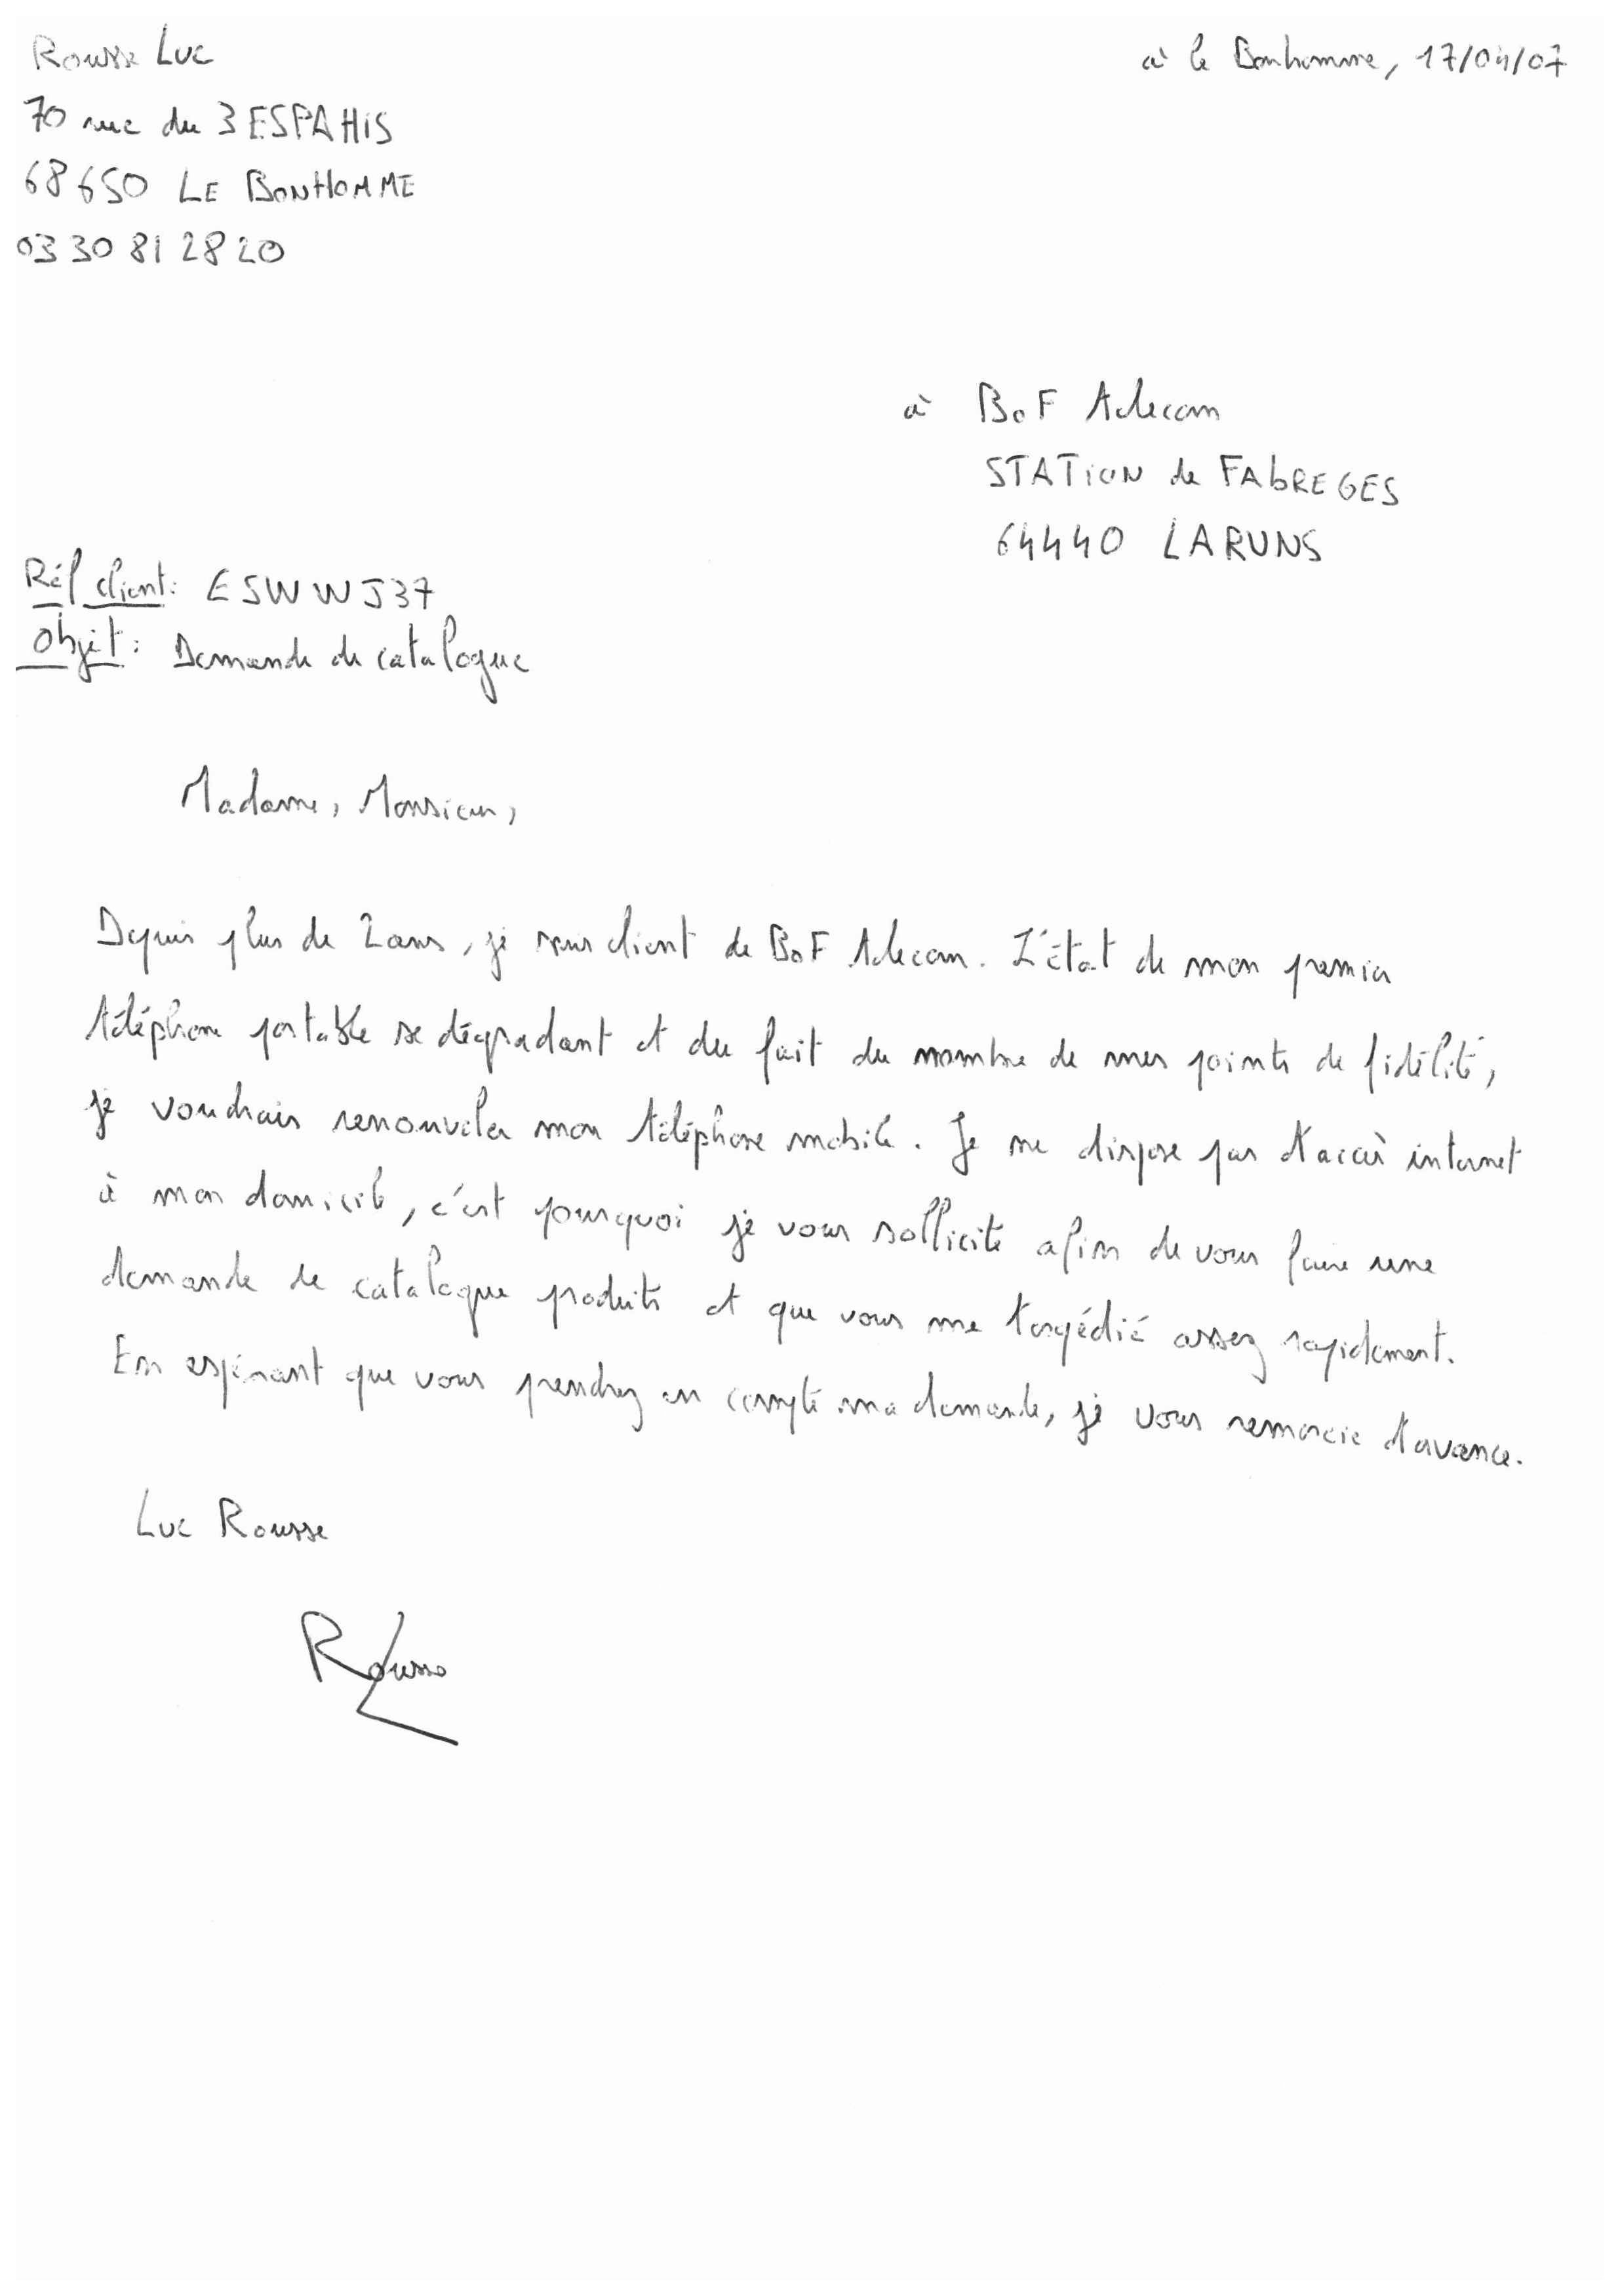 Rousse Luc
à le Bonhomme, 17/04/07
70 rue du 3 ESPAHIS
68650 LE BONHOMME
03 30 81 28 20
à BoF Telecom
STATION de FABREGES
64440 LARUNS
Réf client: ESWWJ37
Objet: Demande de catalogue
Madame, Monsieur,
Depuis plus de 2 ans, je suis client de BoF Telecom. L'état de mon premier
téléphone portable se dégradant et du fait du nombre de mes points de fidélité,
je voudrais renouveler mon téléphone mobile. Je ne dispose pas d'accès internet
à mon domicile, c'est pourquoi je vous sollicite afin de vous faire une
demande de catalogue produits et que vous me assez rapidement.
En espérant que vous prendrez en compte ma demande, je vous remercie d'avance.
Luc Rousse
Rousse